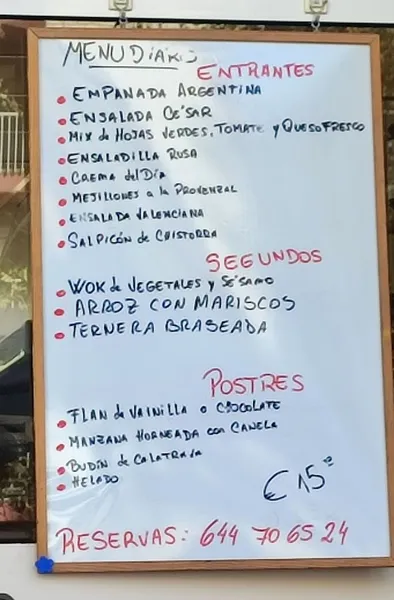 MENU DiARiO
ENTRANTES
• EMPANADA ARGENTINA
• ENSALADA CÉSAR
• Mix de HOJAS VERDES, TOMATE y QUESO FRESCO
• ENSALADILLA RUSA
• CREMA del DÍA
• MEJILLONES a la PROVENZAL
• ENSALADA VALENCIANA
• SALPICÓN de CHISTORRA
SEGUNDOS
• WOK de VEGETALES y SÉSAMO
• ARROZ CON MARISCOS
• TERNERA BRASEADA
POSTRES
• FLAN de VAINILLA o CHOCOLATE
• MANZANA HORNEADA con CANELA
• BUDÍN de CALATRAVA
• HELADO
€ 15
RESERVAS: 644 70 65 24